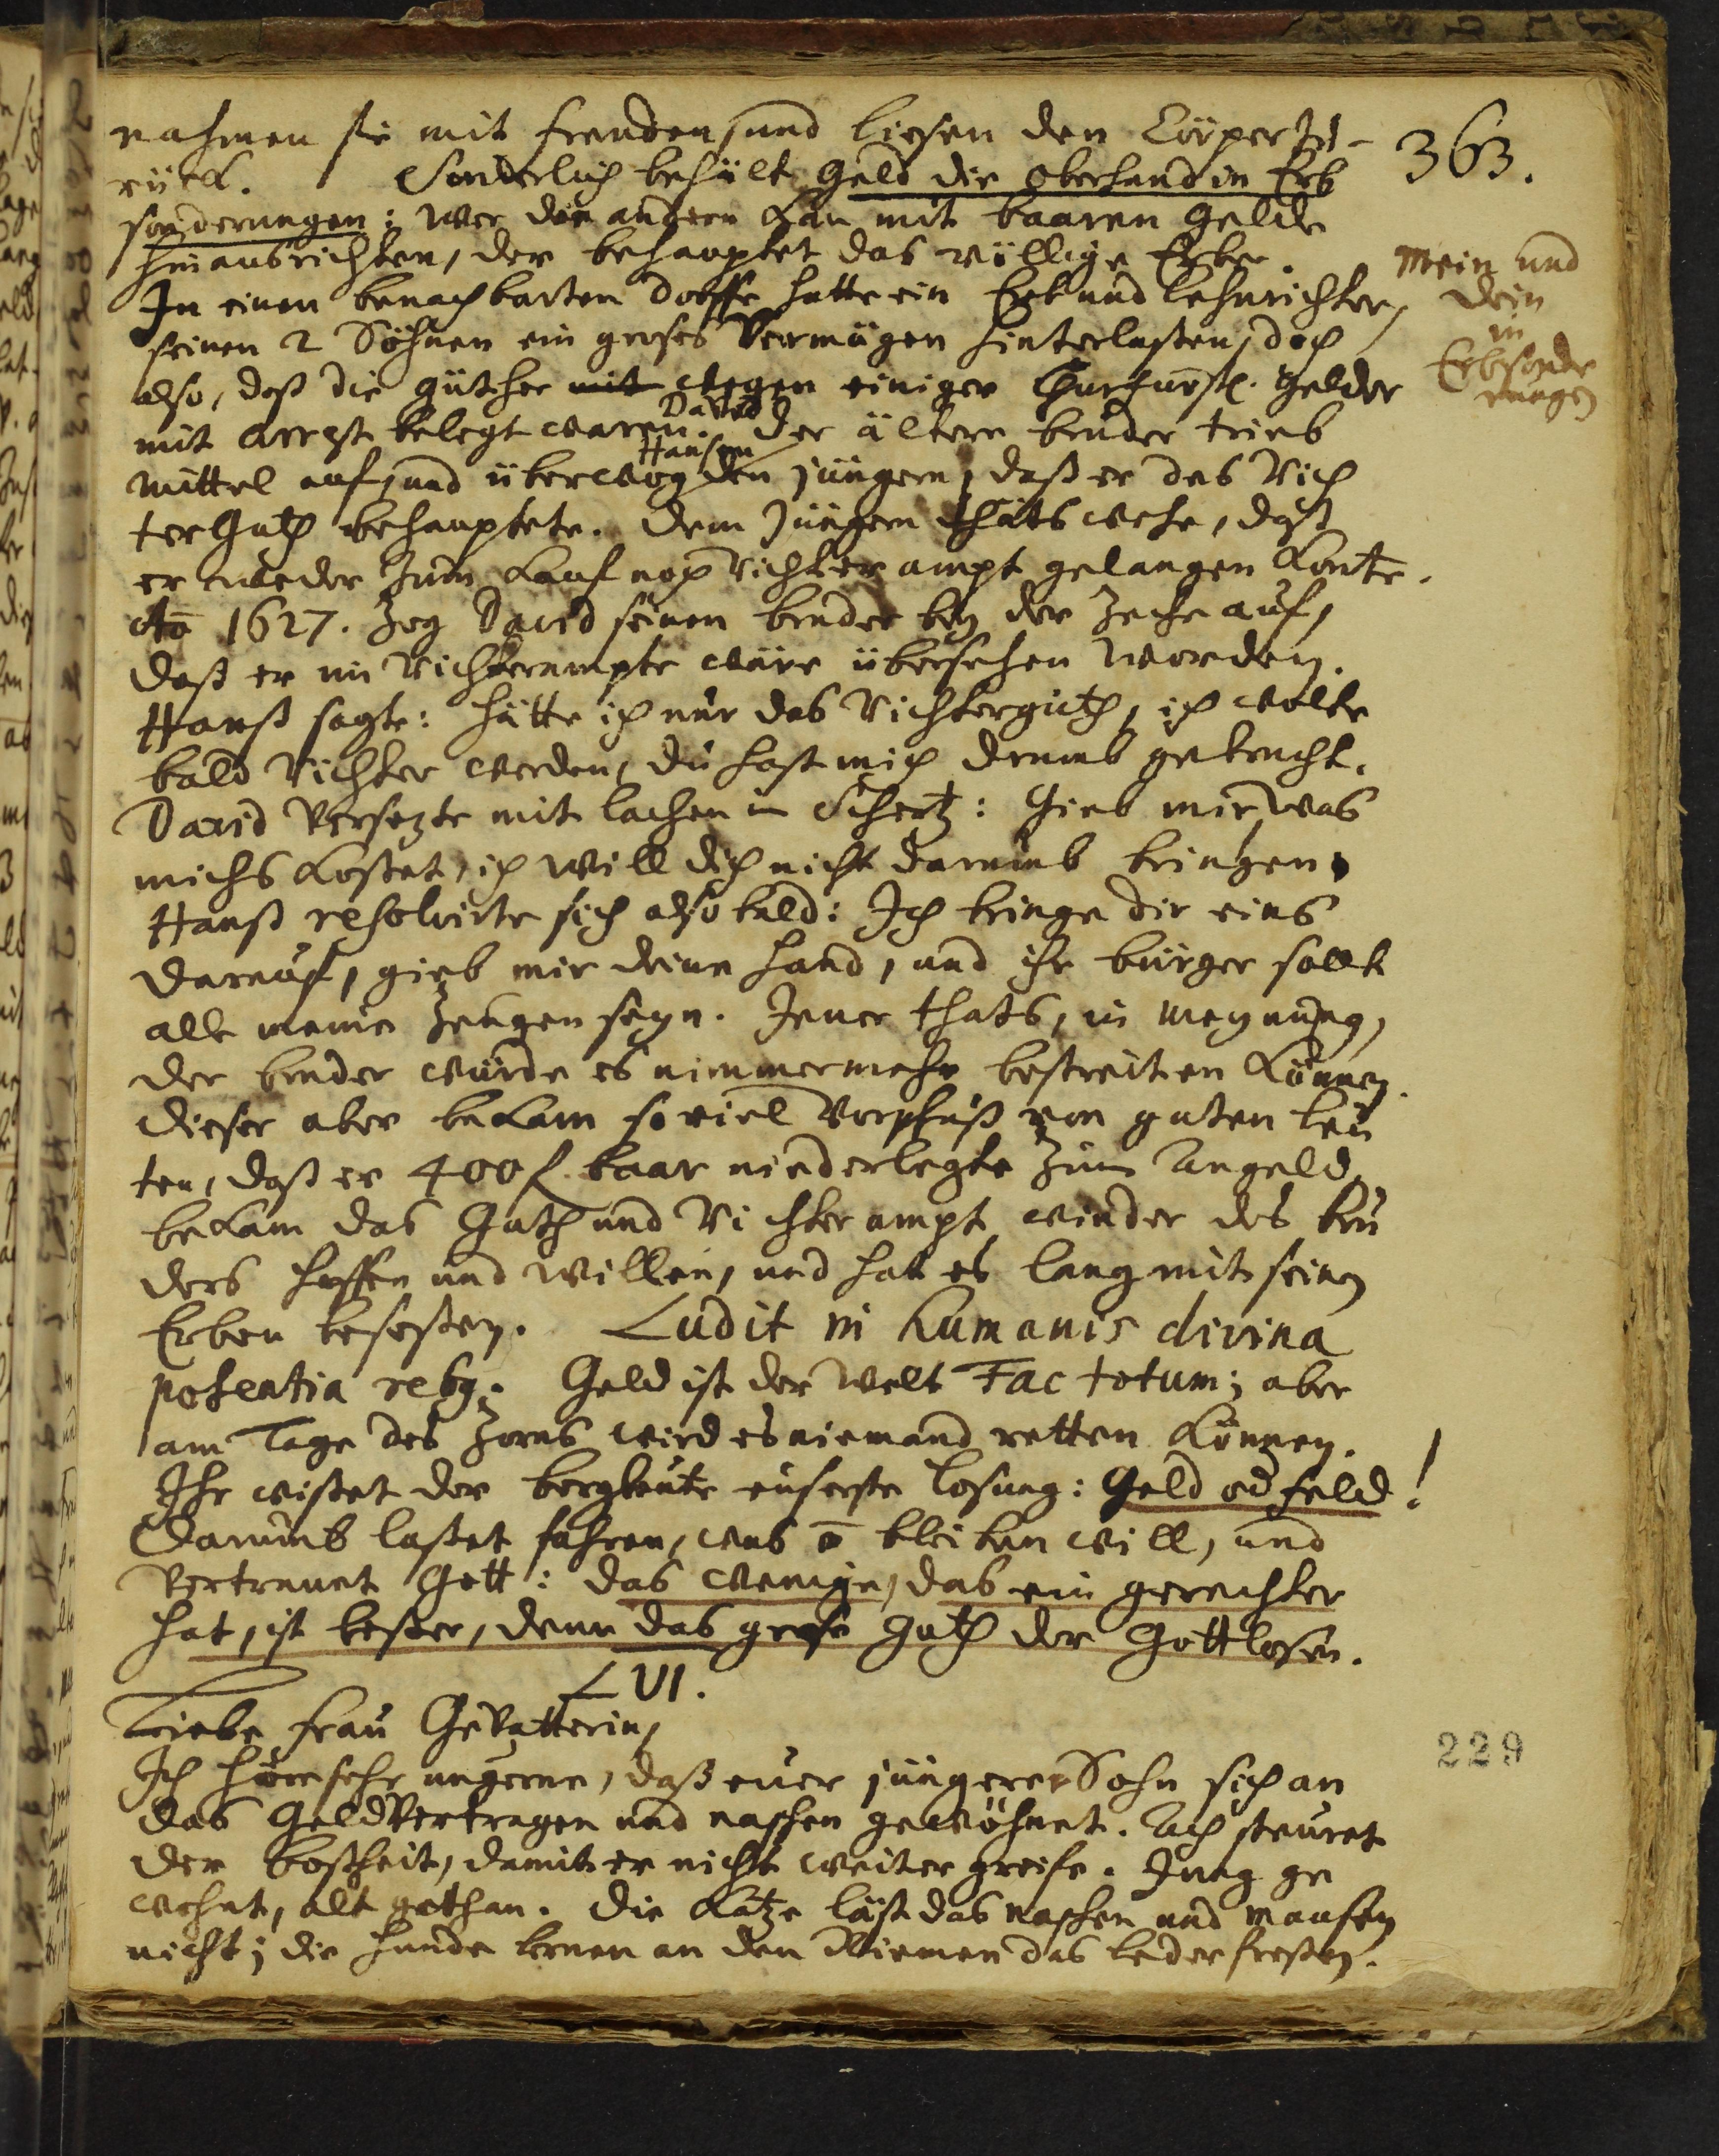 363.
nahmen sie mit freuden, und liesen den Cörper zu-
rück. Sonderlich behält Geld die oberhand in Erb
sonderungen: wer die andern kan mit baaren gelde
hinausrichten, der behauptet das völlige Erbe.
Mein und
dein
in
Erbsonde
rungen
In einen benachbarten dorffe hatte ein Erb und Lehnrichter,
seinen 2 Söhnen ein groses Vermögen hinterlaßen, doch
also, daß die Güther mit wegen einiger Churfürstl. Gelder
mit Arrest belegt waren. David der ältere bruder trieb
mittel auf, und überwog Hansen den jüngern, daß er das Rich
terGuth behauptete. Dem Jüngern thäts wehe, daß
er weder zum Kauf noch Richterampt gelangen konte.
Ao 1627. Zog David seinen bruder bey der Zeche auf,
daß er im Richterampte wäre übersehen worden.
Hanß sagte: hätte ich nur das Richterguth, ich wolte
bald Richter werden, du hast mich drumb gebracht.
David Versezte mit lachen im Schertz: Gieb mir, was
michs kostet, ich will dich nicht darumb bringen.
Hanß resolvirte sich also bald: Ich bringe dir eins
darauf, gieb mir deine hand, und ihr bürger sollt
alle meine Zeugen seyn. Jener thats, in meynung,
der bruder würde es nimmermehr bestreiten können.
Dieser aber bekam so viel Vorschuß von guten leu
ten, daß er 400 f. baar niederlegte zum Angeld,
bekam das Guth und Richterampt wieder des bru
ders hoffen und willen, und hat es lang mit seinen
Erben beseßen. Ludit in humanis divina
potentia rebg. Geld ist der Welt Fac totum; aber
am Tage des Zorns wird es niemand retten können.
Ihr wißet der bergleute euserste losung: Geld od feld!
Darumb laßet fahren, was o bleiben will, und
Vertrauet Gott: das wenige, das ein gerechter
hat, ist beßer, denn das grose Guth der Gottlosen.
LVI.
Liebe frau GeVatterin,
Ich höre sehr ungerne, daß euer jüngerer Sohn sich an
das GeldVertragen und naschen gewöhnet. Ach steuret
der boßheit, damit er nicht weiter greife. Jung ge
wohnt, alt gethan. Die Katze läst das naschen und mausen
nicht; die hunde lernen an den Riemen das leder freßen.
229